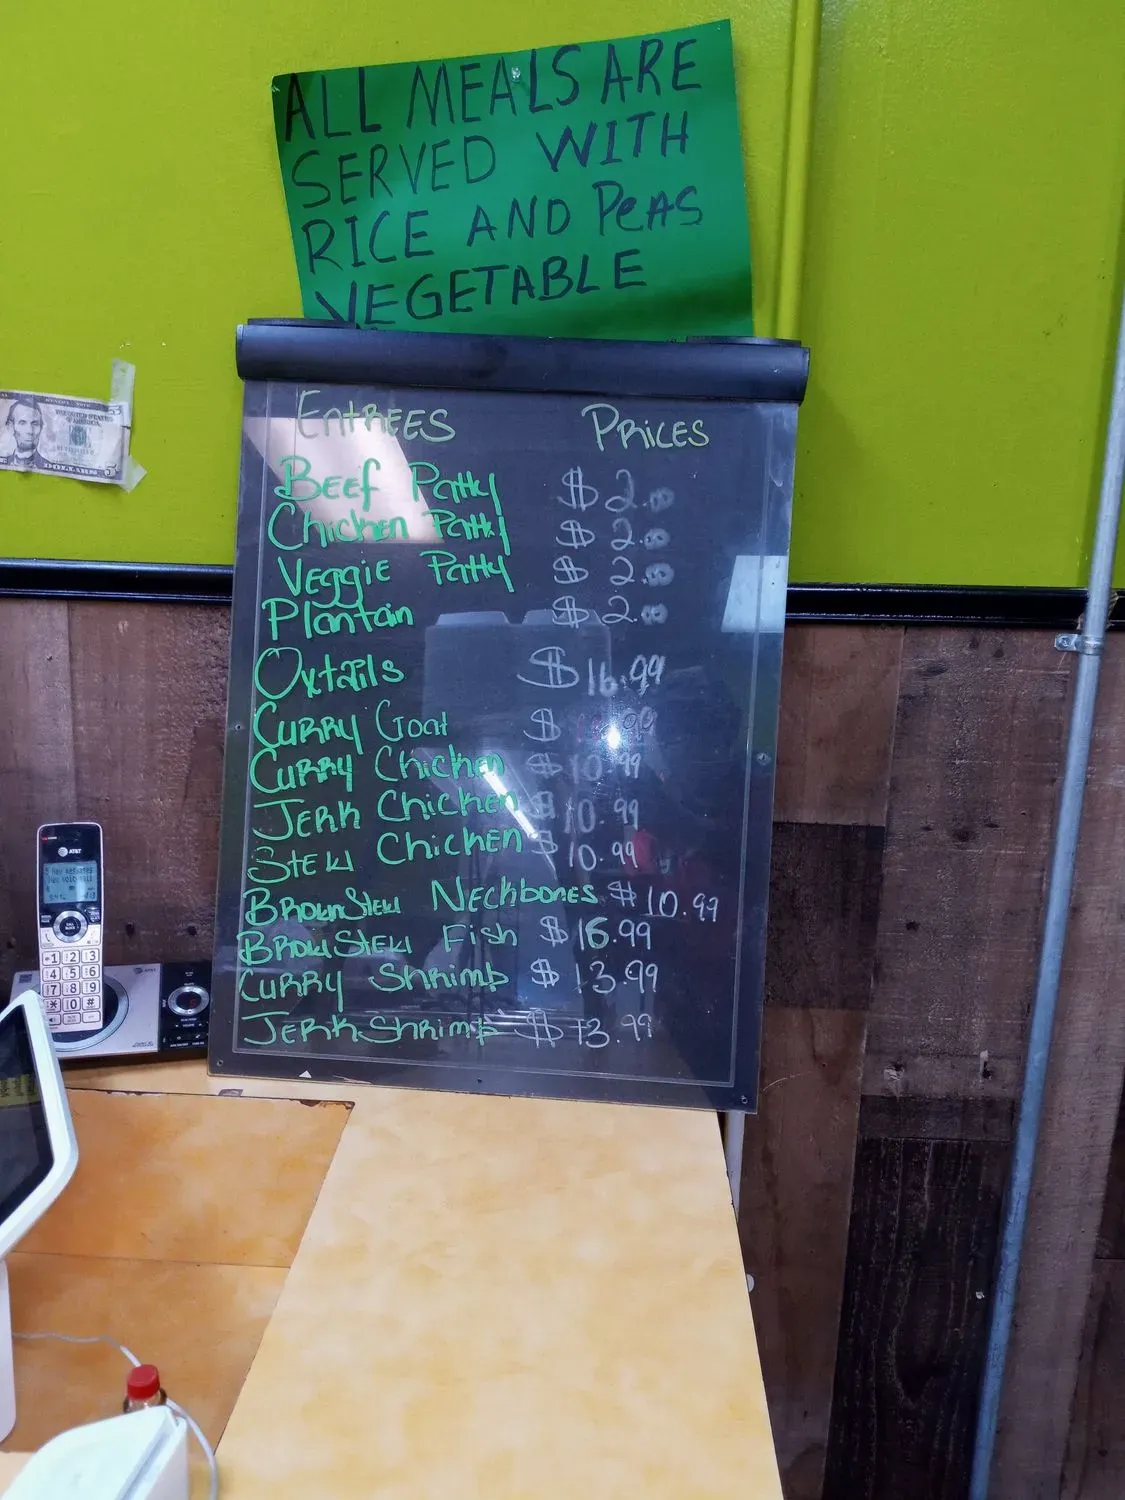 ALL MEALS ARE
SERVED WITH
RICE AND PeAS
VEGETABLE
ENTREES PRICES
BEEF Patty $2.00
Chicken Patty $2.00
VEGGIE Patty $2.00
Plantain $2.00
Oxtails $16.99
CURRY Goat $ .99
CURRY Chicken $10.99
JERK Chicken $10.99
STEW Chicken $10.99
BROWNSTEW NECKBONES $10.99
BROWSTEW Fish $16.99
CURRY Shrimp $13.99
JERK Shrimp $13.99
DOLLARS 5
AT&T
1 2 3
4 5 6
7 8 9
* 0 #